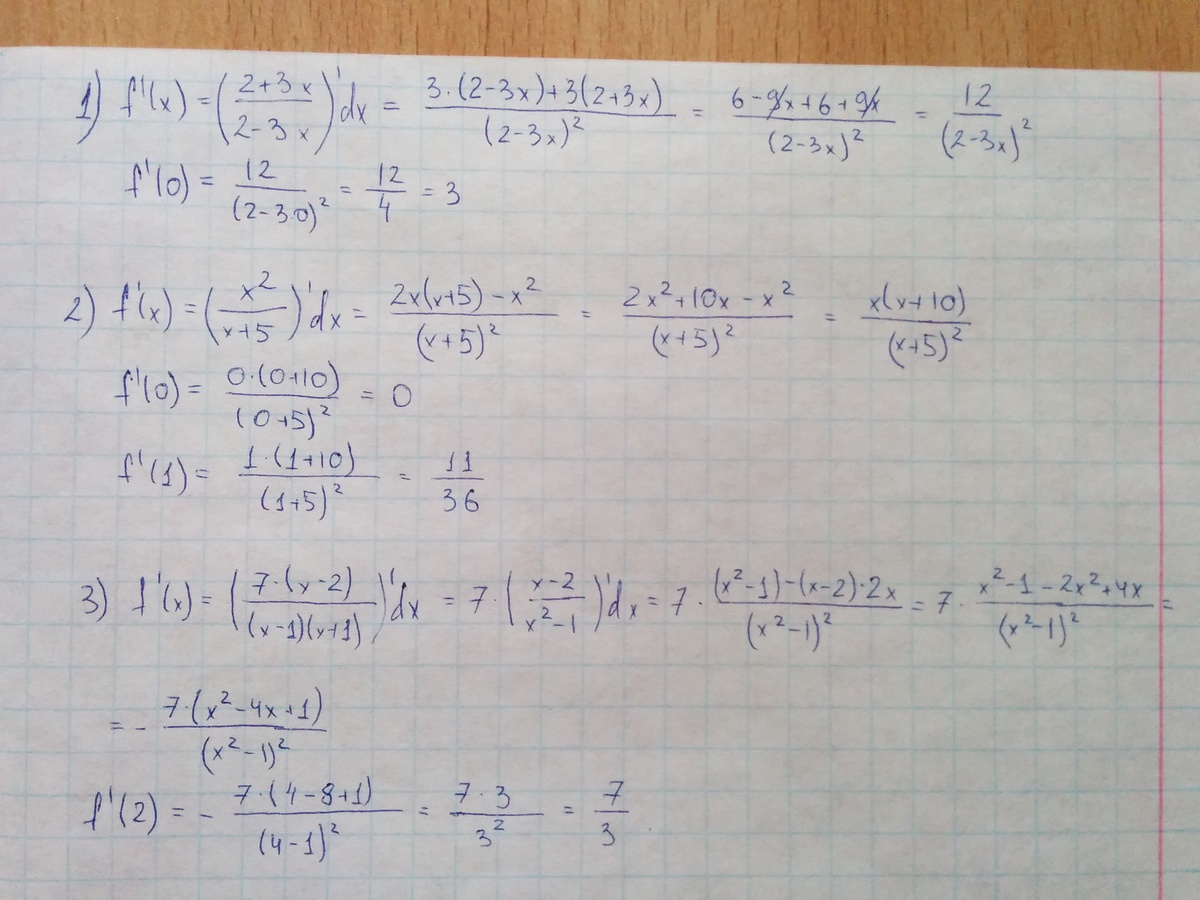 1) f'(x) = ((2+3x)/(2-3x))'dx = (3·(2-3x)+3(2+3x))/(2-3x)² = (6-9x+6+9x)/(2-3x)² = 12/(2-3x)²
f'(0) = 12/(2-3·0)² = 12/4 = 3
2) f'(x) = (x²/(x+5))'dx = (2x(x+5)-x²)/(x+5)² = (2x²+10x-x²)/(x+5)² = x(x+10)/(x+5)²
f'(0) = 0·(0+10)/(0+5)² = 0
f'(1) = 1·(1+10)/(1+5)² = 11/36
3) f'(x) = (7·(x-2)/((x-1)(x+1)))'dx = 7·((x-2)/(x²-1))'dx = 7·((x²-1)-(x-2)·2x)/(x²-1)² = 7·(x²-1-2x²+4x)/(x²-1)² =
= - 7·(x²-4x+1)/(x²-1)²
f'(2) = - 7·(4-8+1)/(4-1)² = 7·3/3² = 7/3